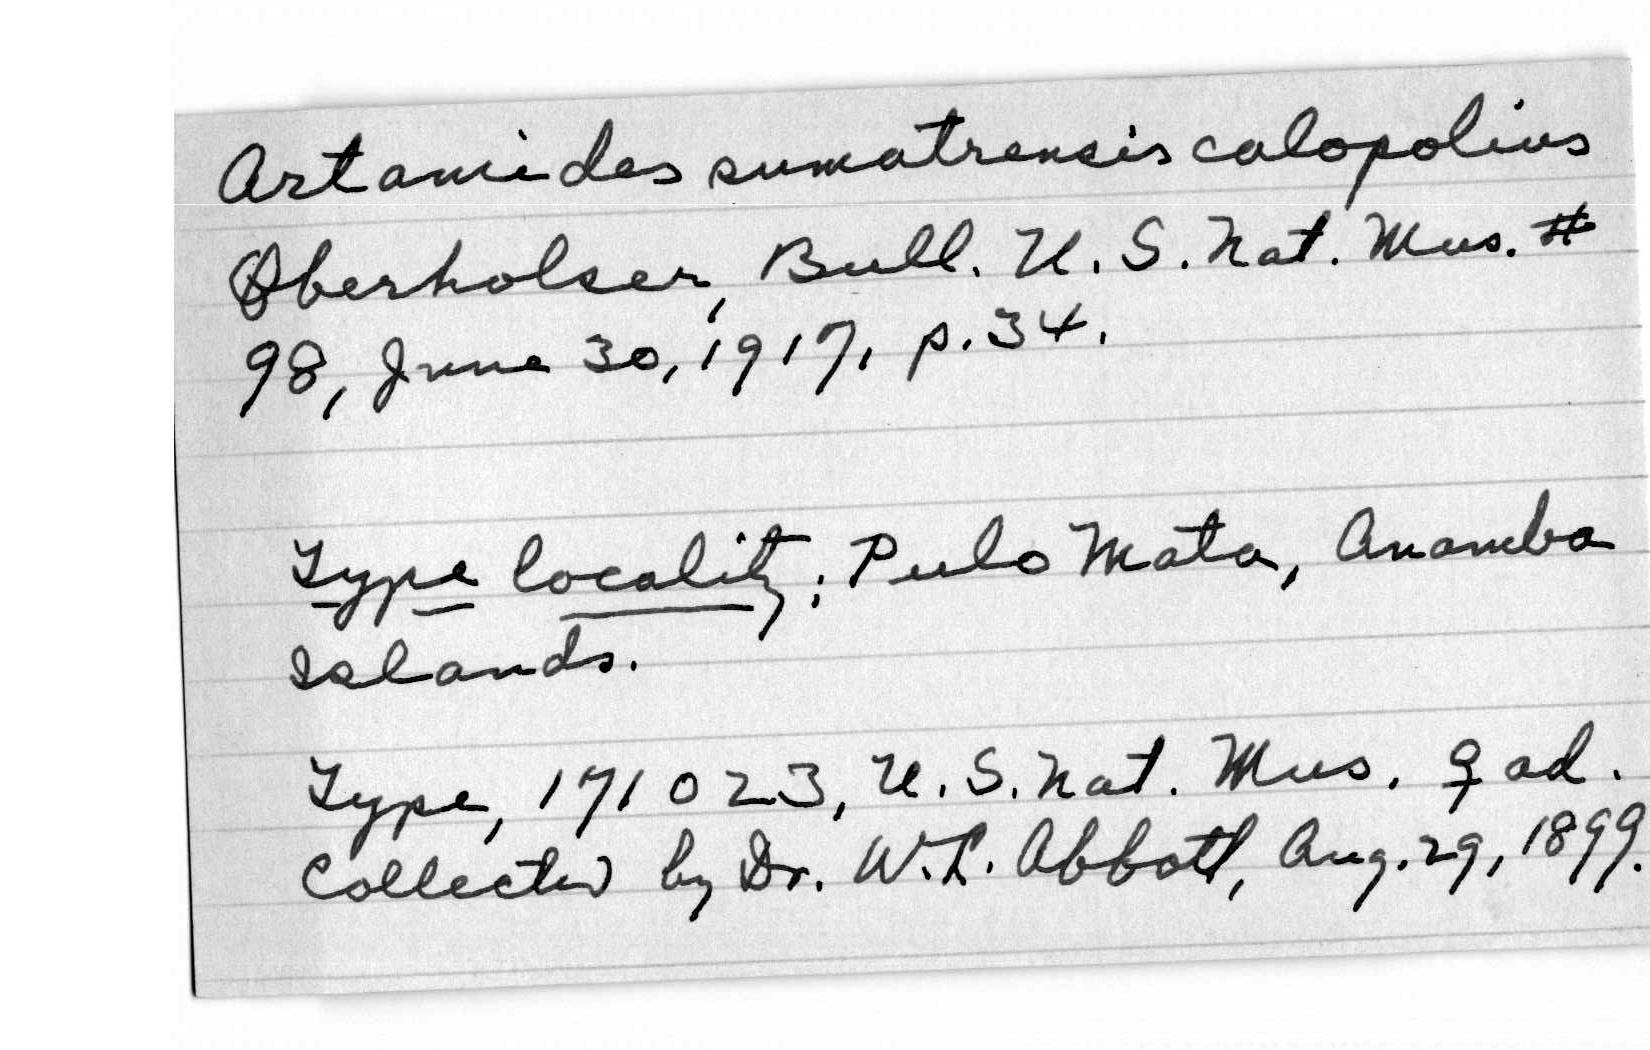 Artamides sumatrensis calopolius
Oberholser, Bull. U. S. Nat. Mus. #
98, June 30, 1917, p. 34.
Type locality; Pulo Mata, Anamba
Islands.
Type, 171023, U. S. Nat. Mus. ♀ ad.
Collected by Dr. W. L. Abbott, Aug. 29, 1899.